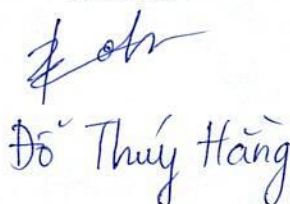 Đỗ Thúy Hằng